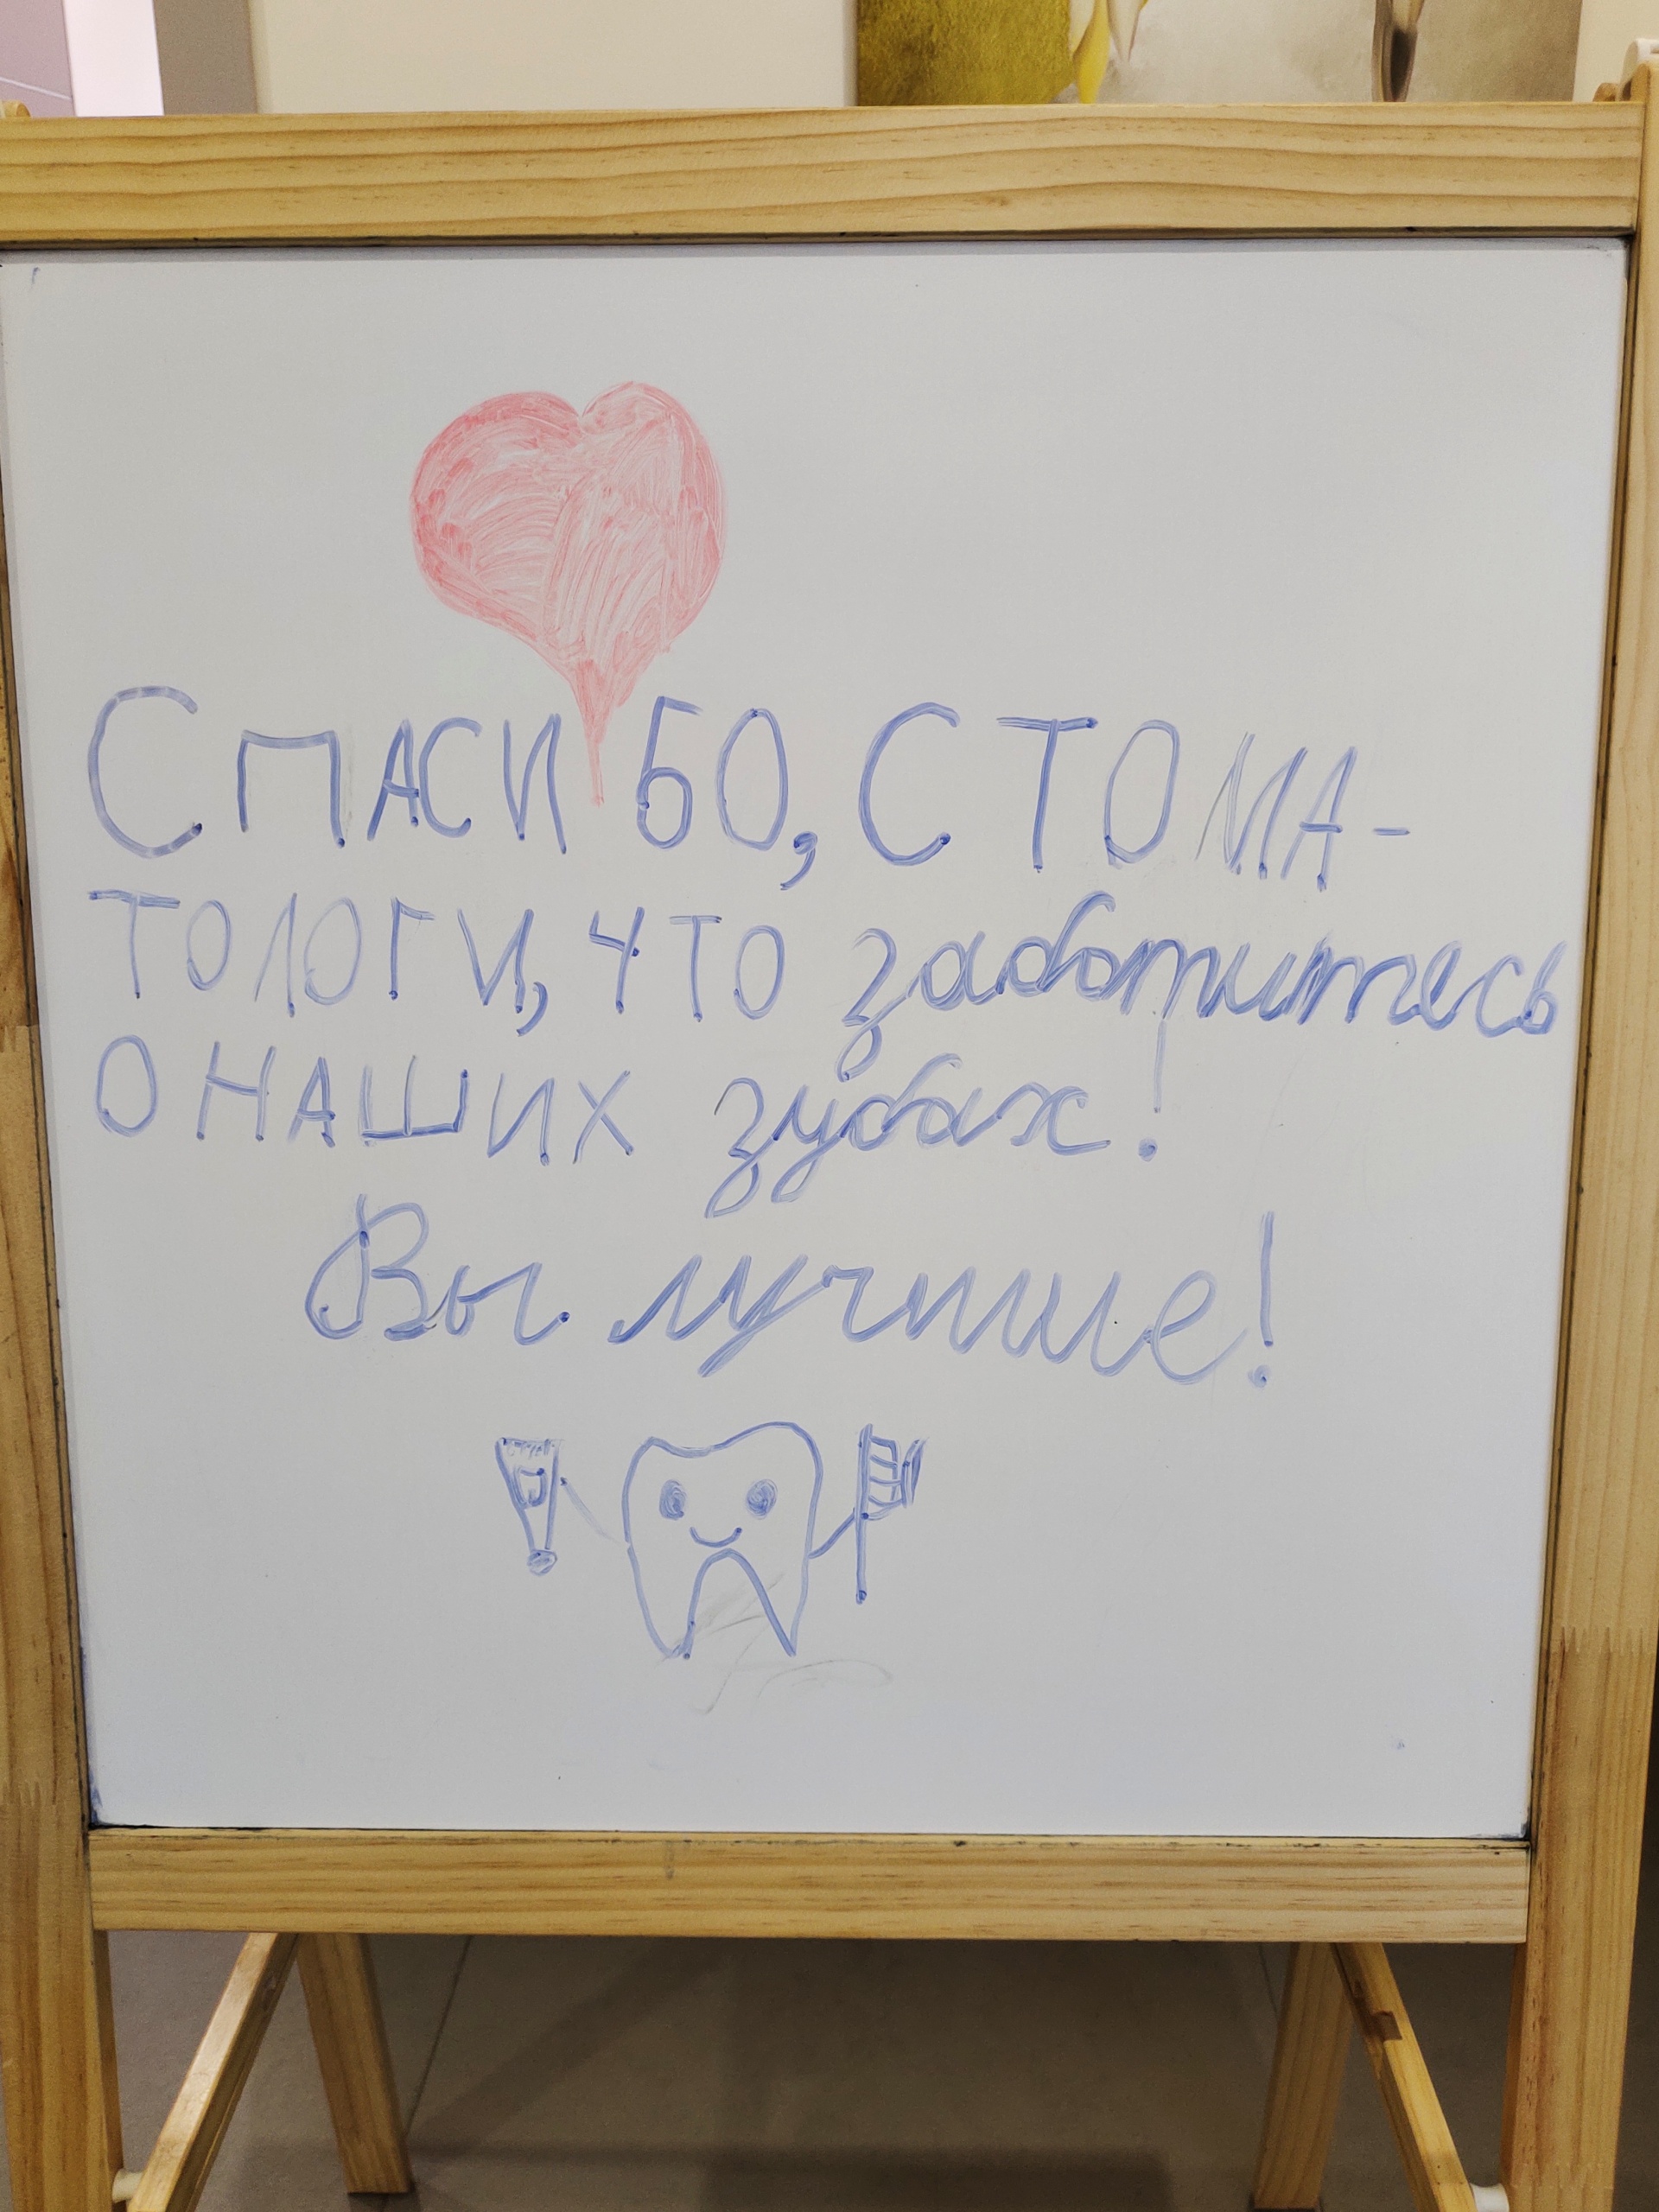 СПАСИБО, СТОМА-
ТОЛОГИ, ЧТО заботитесь
О НАШИХ зубах!
Вы лучшие!